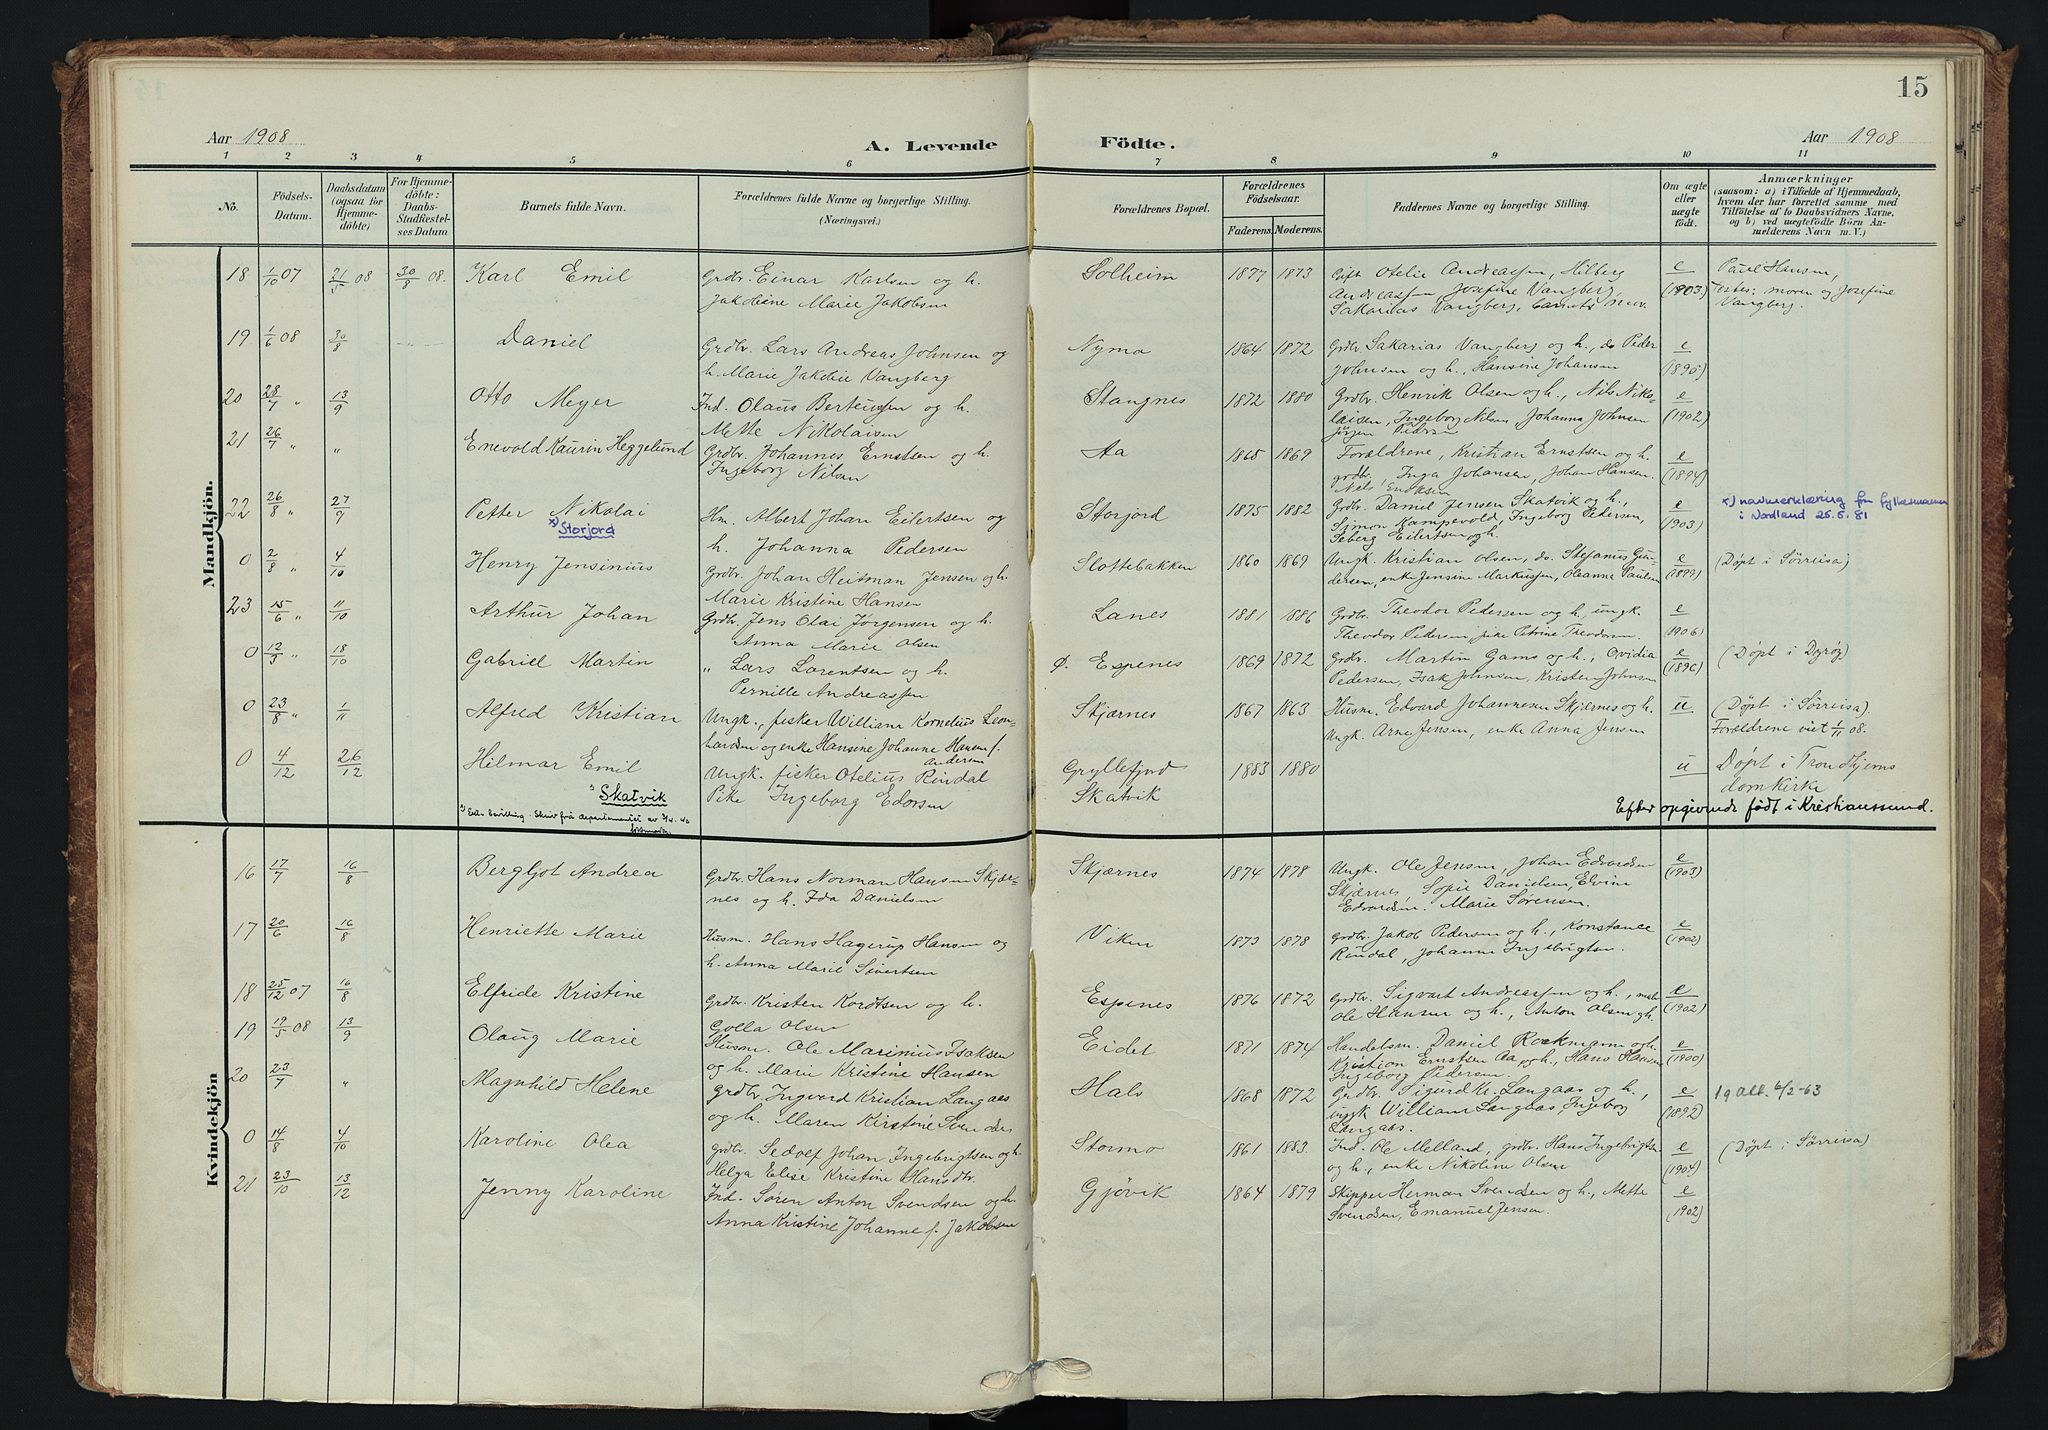 15
Aar 1908
A. Levende
Födte.
Aar 1908
1 2 3 4 5 6 7 8 9 10 11
No.
Födsels-Datum.
Daabsdatum (ogsaa for Hjemmedöbte)
For Hjemmedöbte: Daabs-Stadfæstelses Datum
Barnets fulde Navn.
Forældrenes fulde Navne og borgerlige Stilling.
(Næringsvei.)
Forældrenes Bopæl.
Forældrenes Födselsaar.
Faderens. Moderens.
Faddernes Navne og borgerlige Stilling.
Om ægte eller uægte födt.
Anmærkninger
(saasom: a) i Tilfælde af Hjemmedaab, hvem der har forrettet samme med Tilföielse af to Daabsvidners Navne, og b) ved uægtefödte Börn Anmelderens Navn m. V.)
Mandkjön.
18 1/10 07 21/5 08 30/8 08. Karl Emil Grdbr. Einar Karlsen og h. Solheim 1877 1873 Gift Otelie Andreassen, Hilberg e Paul Hansen,
Jakobine Marie Jakobsen Andreassen, Josefine Vangberg, (1903) Testes: moren og Josefine
Sakarias Vangberg, barnets mor. Vangberg.
19 1/6 08 30/8 Daniel Grdbr. Lars Andreas Johnsen og Nymo 1864 1872 Grdbr. Sakarias Vangberg og h., do Peder e
h. Marie Jakobie Vangberg Johnsen og h., Hansine Johansen (1895)
20 28/7 " 13/9 Otto Meyer Ind. Olaus Berteussen og h. Stangnes 1872 1880 Grdbr. Henrik Olsen og h., Nils Niko- e
Mette Nikolaisen laisen, Ingeborg Nilsen, Johanna Johnsen (1902)
Jörgen Pedersen
21 26/7 " " Enevold Kaurin Heggelund Grdbr. Johannes Ernstsen og h. Aa 1865 1869 Forældrene, Kristian Ernstsen og h. e
Ingeborg Nilsen grdbr. Inga Johansen, Johan Hansen. (1894)
Nils Eriksen
22 26/8 " 27/9 Petter Nikolai Hm. Albert Johan Eilertsen og Storjord 1875 1882 Grdbr. Daniel Jensen Skatvik og h., e x) navneerklæring fra fylkesmannen
x) Storjord h. Johanna Pedersen Simon Kampevold, Ingeborg Pedersen, (1903) i Nordland 25.5.81
Seberg Eilertsen og h.
0 2/8 " 4/10 Henry Jensinius Grdbr. Johan Heitman Jensen og h. Slottebakken 1860 1869 Ungk. Kristian Olsen, do. Stefanus Gun- e (Døpt i Sørreisa)
Marie Kristine Hansen dersen, enke Jensine Markussen, Oleanna Paulsen (1899)
23 15/6 " 11/10 Arthur Johan Grdbr. Jens Olai Jörgensen og h. Lanes 1881 1886 Grdbr. Theodor Pedersen og h, ungk. e
Anna Marie Olsen Theodor Pedersen, pike Petrine Theodorsen. (1906)
0 12/9 " 18/10 Gabriel Martin " Lars Lorentsen og h. Ø. Espenes 1869 1872 Grdbr. Martin Gams og h., Ovidia e (Døpt i Dyrøy)
Pernille Andreassen Pedersen, Isak Johnsen, Kristen Johnsen (1896)
0 23/8 " 1/11 Alfred Kristian Ungk., fisker William Kornelius Leon- Skjærnes 1867 1863 Husm. Edvard Johannesen Skjærnes og h. u (Døpt i Sørreisa).
hardsen og enke Hansine Johanne Hansen f. Andersen Ungk. Arne Jensen, enke Anna Jensen Forældrene viet 1/11 08.
0 4/12 26/12 Hilmar Emil Ungk. fisker Otelius Rindal Gryllefjord 1883 1880 u Døpt i Trondhjems
x) Skatvik Pike Ingeborg Edorsen Skatvik domkirke
Efter opgivende født i Kristianssund.
Kvindekjön
16 17/7 16/8 Bergljot Andrea Grdbr. Hans Norman Hansen Skjær- Skjærnes 1874 1878 Ungk. Ole Jensen, Johan Edvardsen e
nes og h. Ida Danielsen Skjærnes, Sofie Danielsen, Elvine (1903)
Edvardsen. Marie Sørensen.
17 20/6 16/8 Henriette Marie Husm. Hans Hagerup Hansen og Viken 1873 1878 Grdbr. Jakob Pedersen og h., Konstance e
h. Anna Marie Sivertsen Rindal, Johanne Ingebrigtsen. (1902)
18 25/12 07 16/8 Elfride Kristine Grdbr. Kristen Kordtsen og h. Espenes 1876 1872 Grdbr. Sigvart Andreassen og h., e
Golla Olsen Ole Hansen og h., Anton Olsen og h. (1902)
19 19/5 08 13/9 Olaug Marie Husm. Ole Marinius Isaksen Eidet 1871 1874 Handelsm. Daniel Rockmann og h. e
og h. Marie Kristine Hansen Kristian Ernstsen Aa og h., Hans Hansen (1900)
Ingeborg Pedersen.
20 23/7 " Magnhild Helene Grdbr. Ingvard Kristian Langaas Hals 1868 1872 Grdbr. Sigurd Kr. Langaas og h., e 1g att. 6/2-63
og h. Maren Kirstine Svendsen ungk William Langaas Ingeborg (1892)
Langaas.
0 14/8 4/10 Karoline Olea Grdbr. Sedolf Johan Ingebrigtsen og h. Stormo 1861 1883 Ind. Ole Melland, grdbr. Hans Ingebrigtsen e (Døpt i Sørreisa)
Helga Elise Kristine Hansdtr. og h., enke Nikoline Olsen (1904)
21 23/10 13/12 Jenny Karoline Ind. Sören Anton Svendsen og h. Gjövik 1864 1879 Skipper Herman Svendsen og h., Mette e
Anna Kristine Johanne f. Jakobsen Svendsen, Emanuel Jensen. (1902)